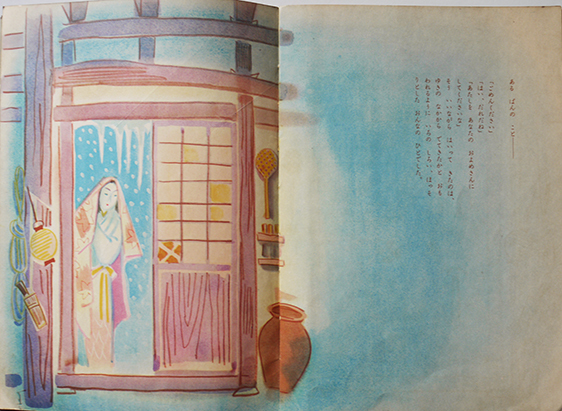 ある ばんの こと――
「ごめんください」
「はい、だれだね」
「あたしを あなたの およめさんに
してくださいな」
そう いいながら はいって きたのは、
ゆきの なかから でてきたかと おも
われるように、いろの しろい、ほっそ
りとした おんなの ひとでした。